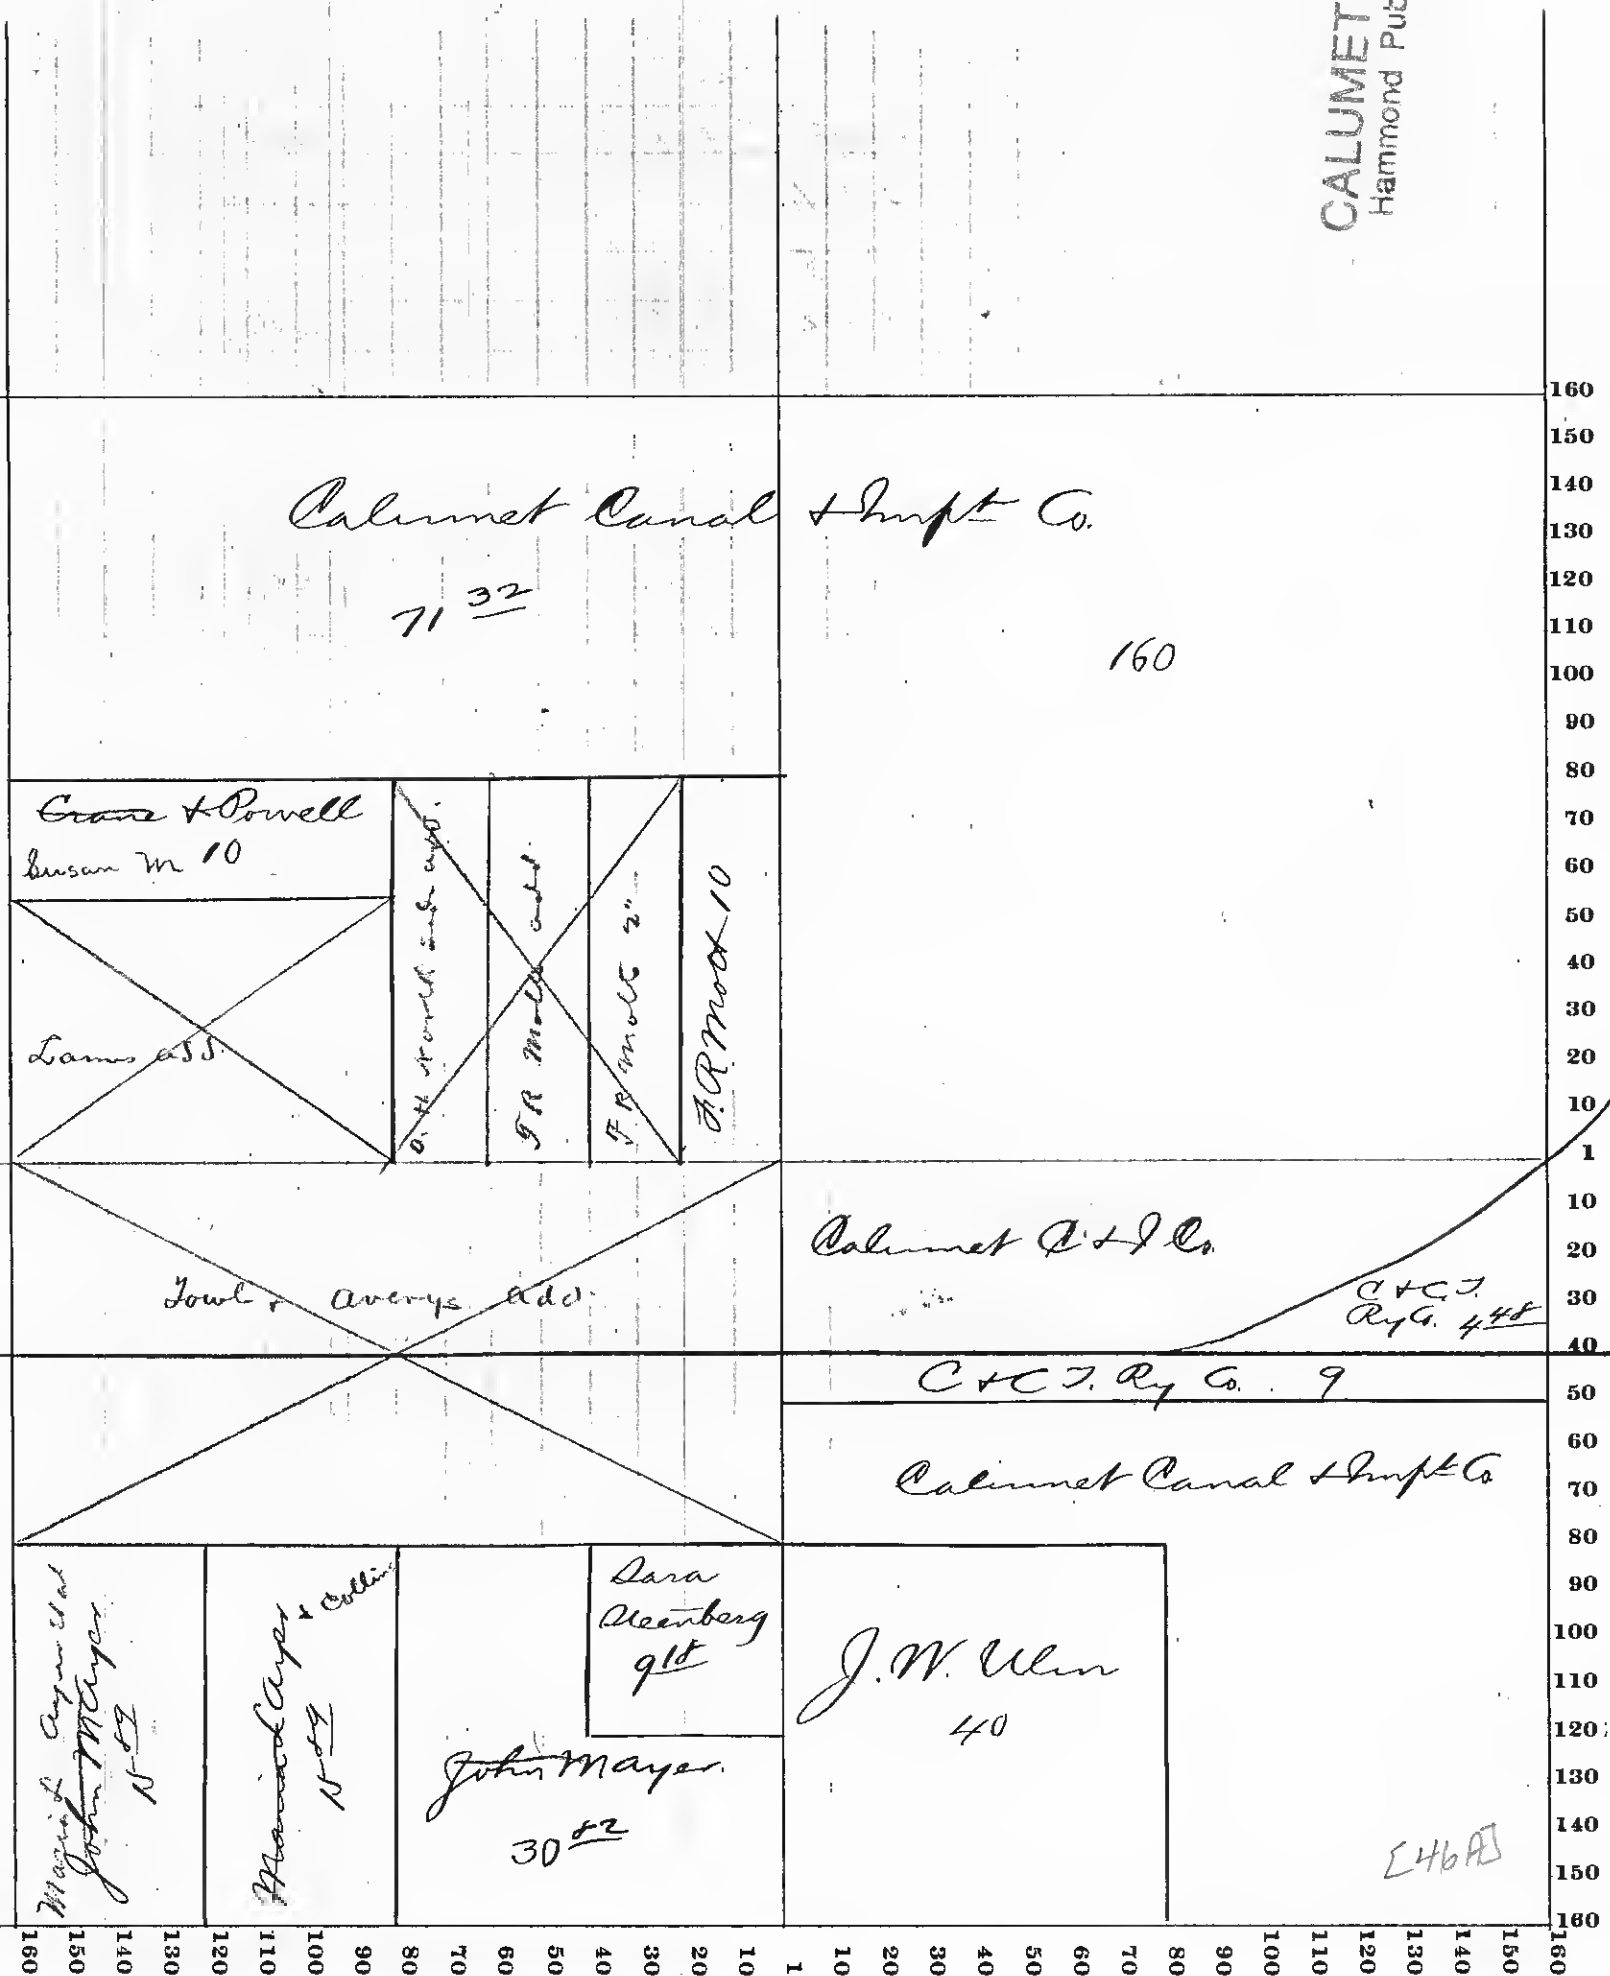 CALUMET
Hammond Pub
Calumet Canal & Impt Co.
71 32
160
Crane & Powell
Susan M 10
add.
F R Mott add
F R Mott 2"
F. R Mott 10
Towle & Averys Add.
Calumet C & I Co.
C & C. T.
Ry Co. 4 48
C & C T. Ry Co. 9
Calumet Canal & Impt Co
John Mayer
15 89
& Collin
15 89
Sara
9 18
John Mayer.
30 82
J. W. Ulm
40
[46A]
160
150
140
130
120
110
100
90
80
70
60
50
40
30
20
10
1
10
20
30
40
50
60
70
80
90
100
110
120
130
140
150
160
160 150 140 130 120 110 100 90 80 70 60 50 40 30 20 10 1 10 20 30 40 50 60 70 80 90 100 110 120 130 140 150 160